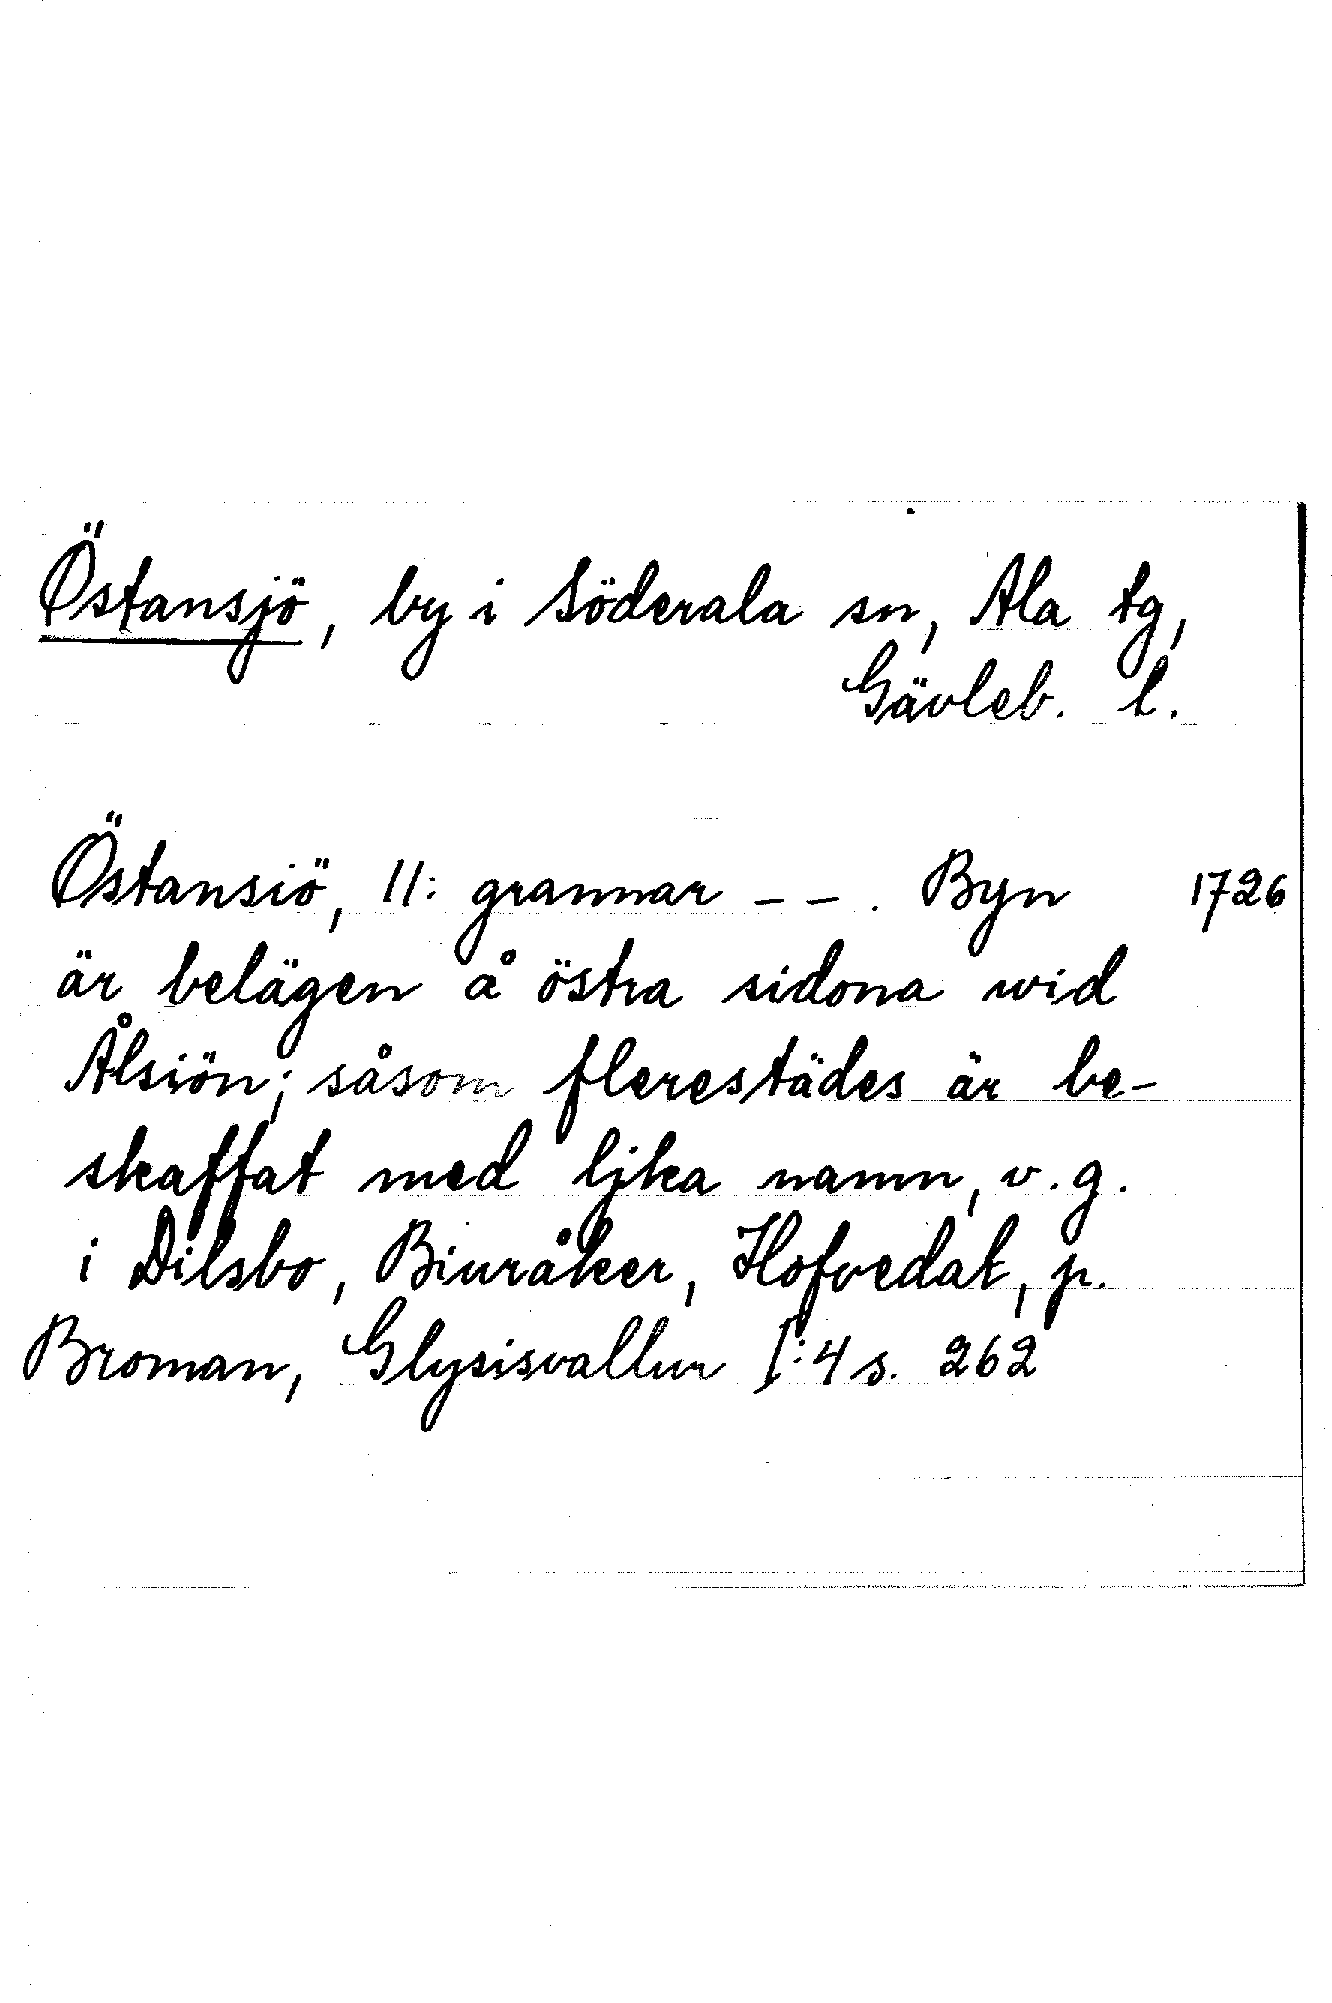 Östansjö, by i Söderala sn, Ala tg,
Gävleb. l.
Östansiö, 11: grannar – – . Byn 1726
är belägen å östra sidona wid
Ålsiön; såsom flerestädes är be-
skaffat med lika namn, v.g.
i Dilsbo, Biuråker, Hofvedal, p.
Broman, Glysisvallur I:4 s. 262